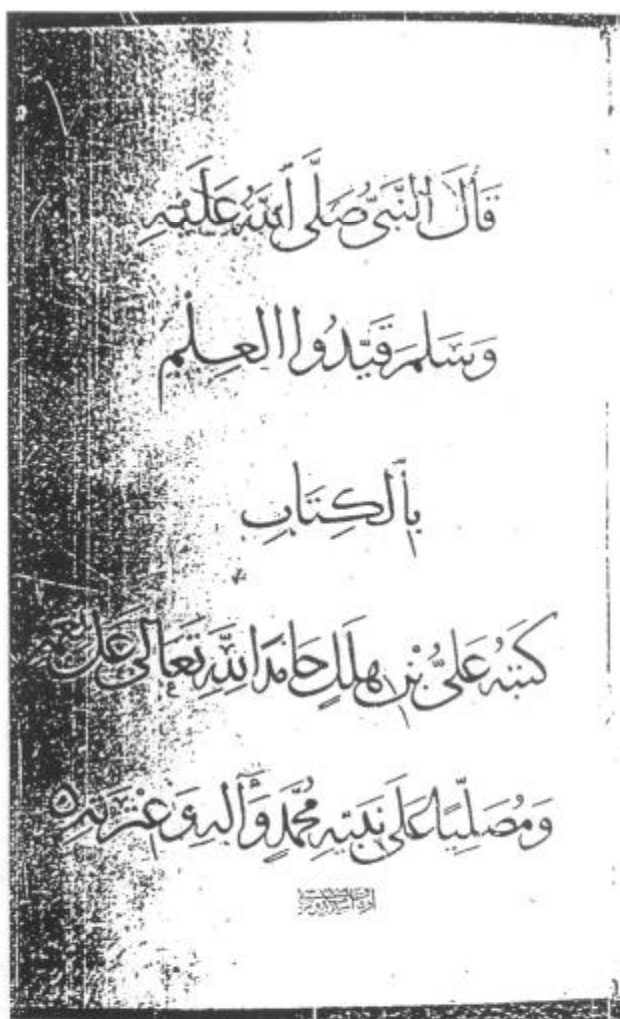 قَالَ النَّبِيُّ صَلَّى اللهُ عَلَيْهِ
وَسَلَّمَ قَيِّدُوا العِلْمَ
بِالكِتَابِ
كَتَبَهُ عَلِيُّ بْنُ هِلَالٍ حَامِدًا لِلَّهِ تَعَالَى عَلَى نِعَمِهِ
وَمُصَلِّيًا عَلَى نَبِيِّهِ مُحَمَّدٍ وَآلِهِ وَعِتْرَتِهِ